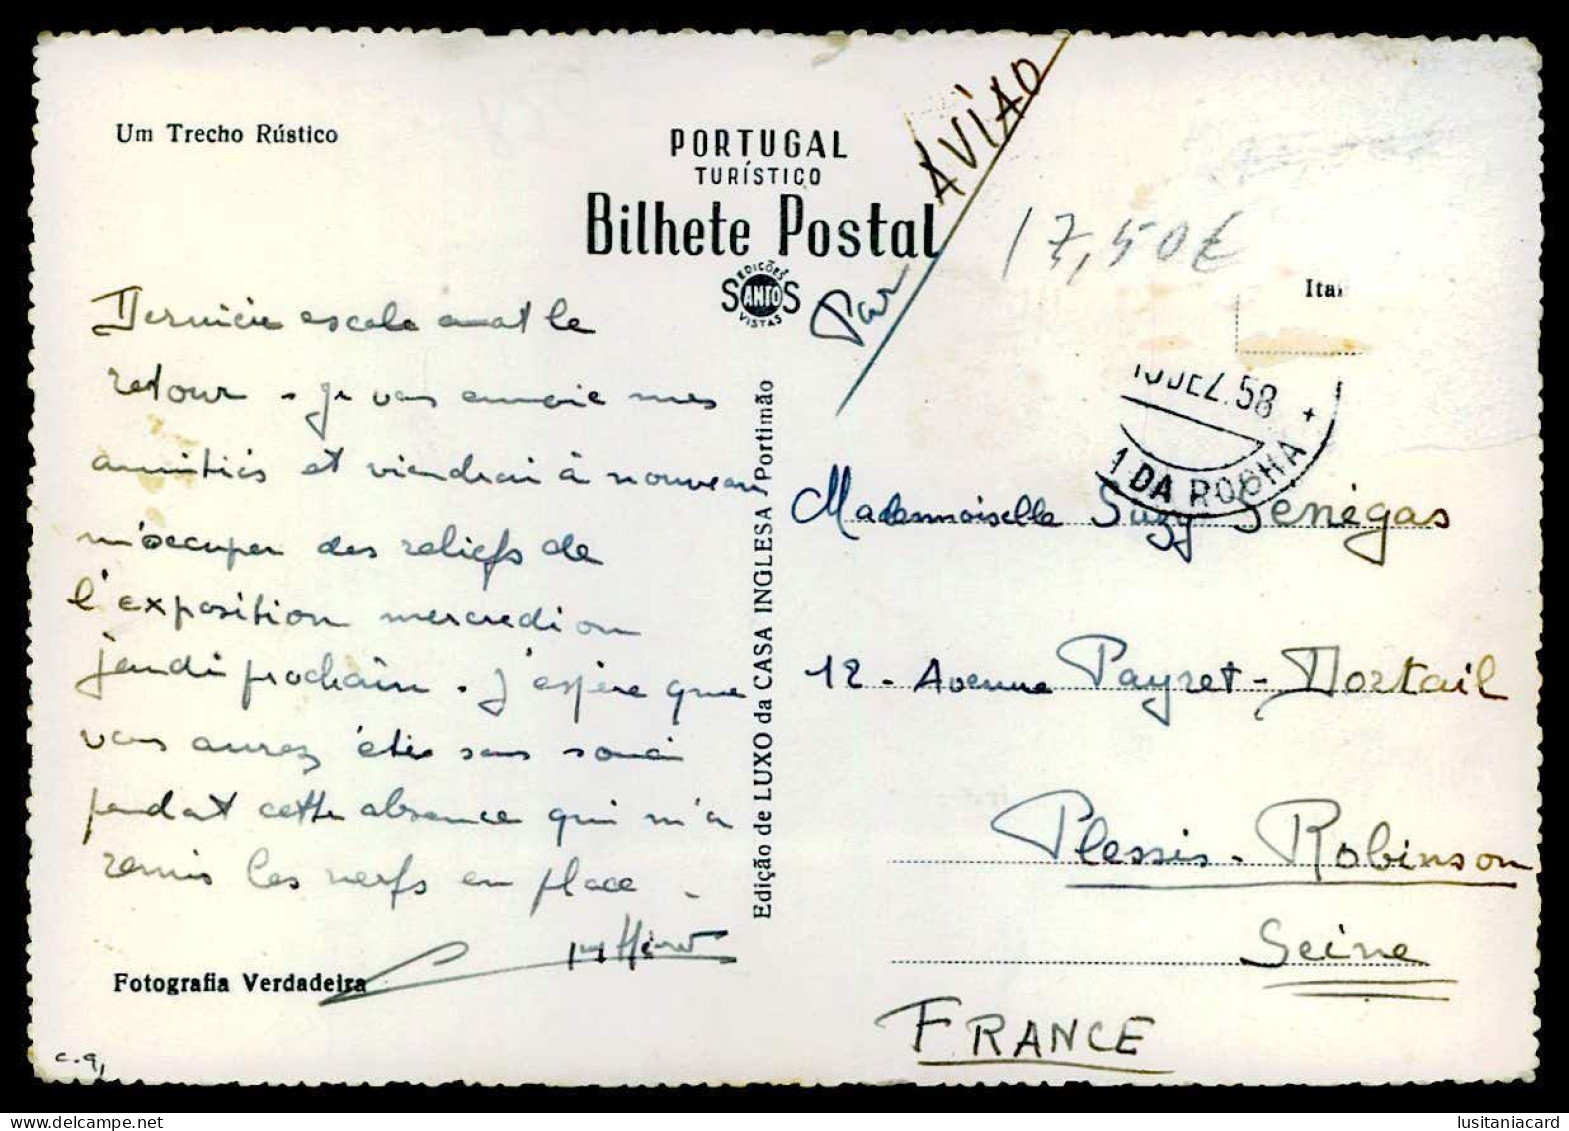 Um Trecho Rústico
PORTUGAL
TURÍSTICO
Bilhete Postal
EDIÇÕES
SANTOS
VISTAS
Par AVIÃO
17,50€
Ital
DEZ.58
DA ROCHA
Dernière escale avant le
retour. Je vous envoie mes
amitiés et viendrai à nouveau
m'occuper des reliefs de
l'exposition mercredi ou
jeudi prochain. J'espère que
vous aurez été sans souci
pendant cette absence qui m'a
remis les nerfs en place.
Fotografia Verdadeira
c.q,
Edição de LUXO da CASA INGLESA Portimão
Mademoiselle Suzy Senégas
12 - Avenue Payret-Dortail
Plessis-Robinson
Seine
FRANCE
lusitaniacard